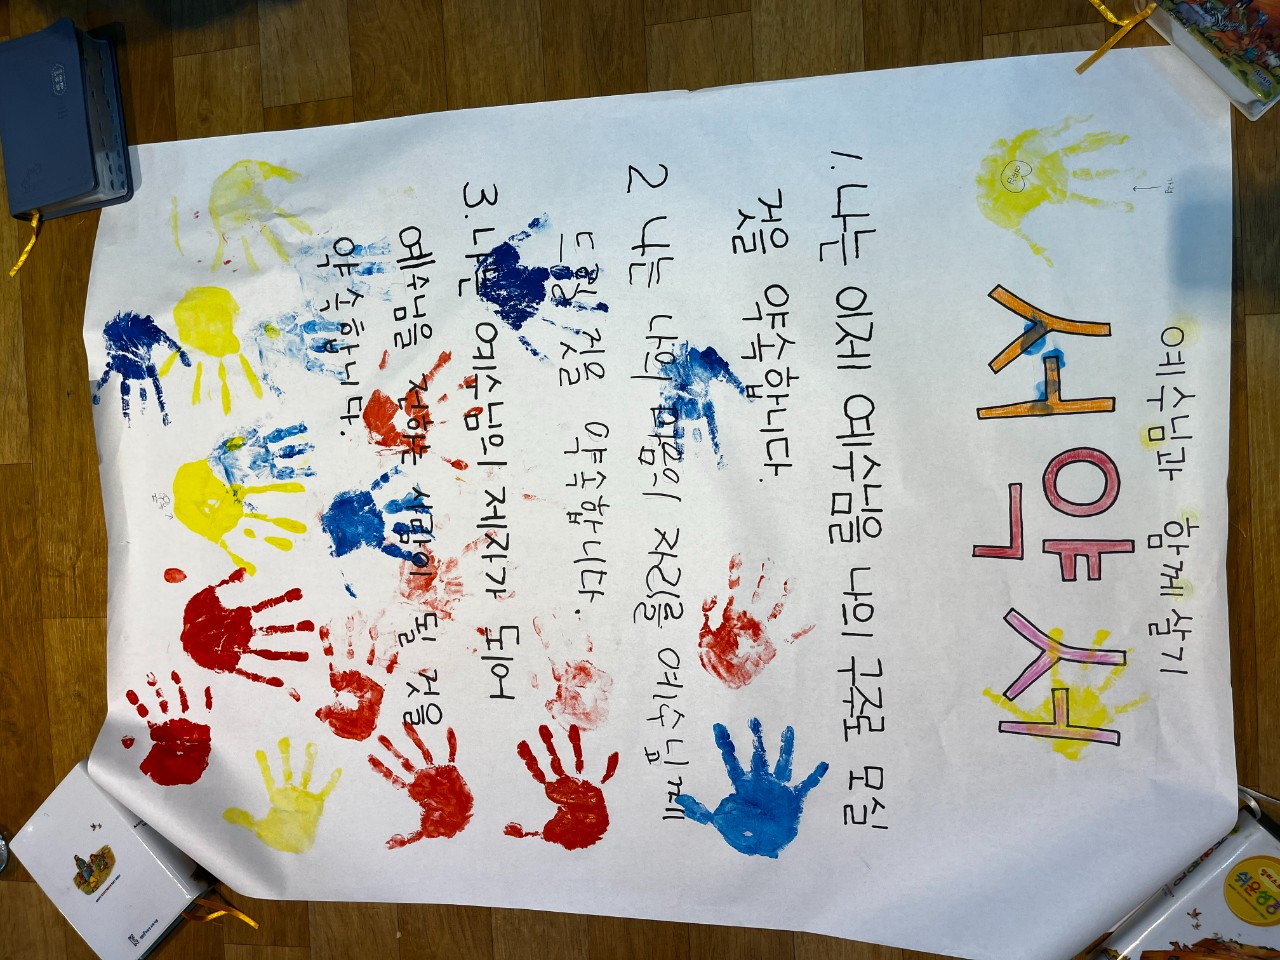 예수님과 함께 살기
서약서
1. 나는 이제 예수님을 나의 구주로 모실
것을 약속합니다.
2 나는 나의 마음의 자리를 예수님께
드릴 것을 약속합니다.
3. 나는 예수님의 제자가 되어
예수님을 전하는 사람이 될 것을
약속합니다.